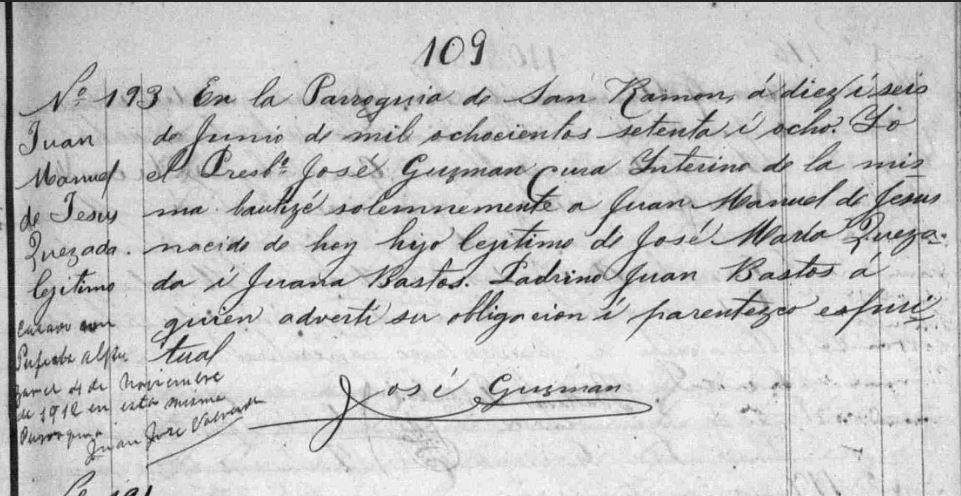 109
Nº 193 En la Parroquia de San Ramon, á diez i seis
de Junio de mil ochocientos setenta i ocho. Yo
el Presbº José Guzman Cura Interino de la mis
ma bautizé solemnemente a Juan Manuel de Jesus
nacido de hoy hijo legitimo de José María Queza-
da i Juana Bastos. Padrino Juan Bastos á
quien adverti su obligacion i parentezco espiri
tual
José Guzman
Juan
Manuel
de Jesús
Quezada.
legitimo
casado con
de Noviembre
de 1912 en esta misma
Parroquia
Juan José